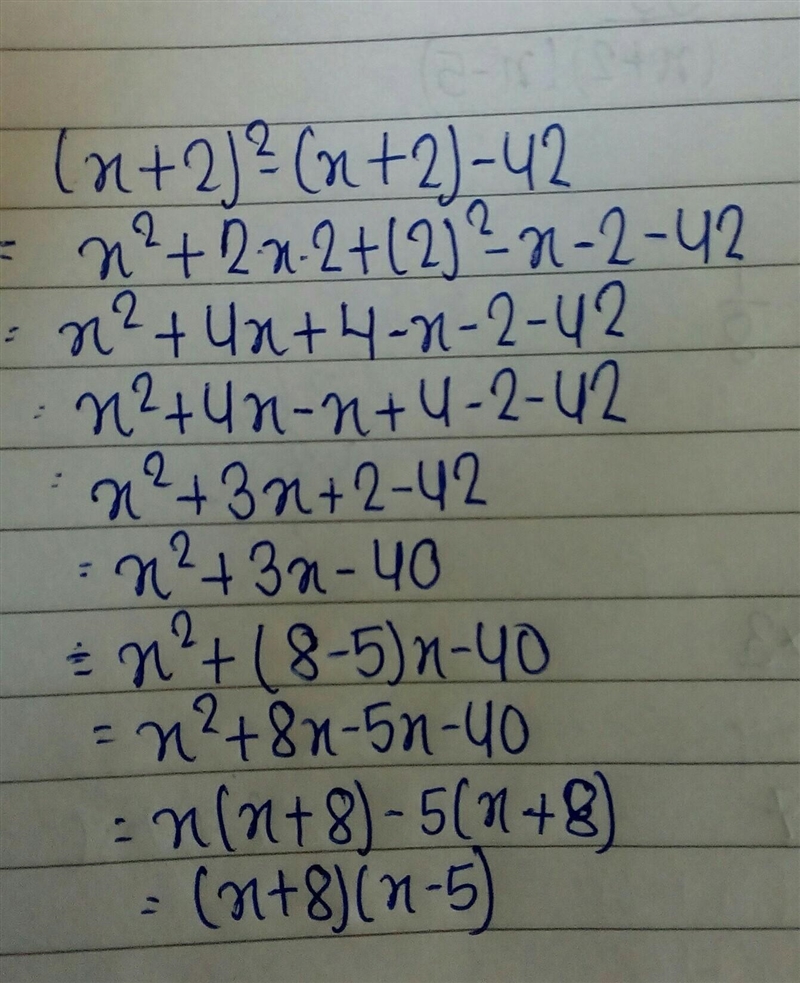 (x+2)²-(x+2)-42
= x²+2·x·2+(2)²-x-2-42
= x²+4x+4-x-2-42
= x²+4x-x+4-2-42
= x²+3x+2-42
= x²+3x-40
= x²+(8-5)x-40
= x²+8x-5x-40
= x(x+8)-5(x+8)
= (x+8)(x-5)